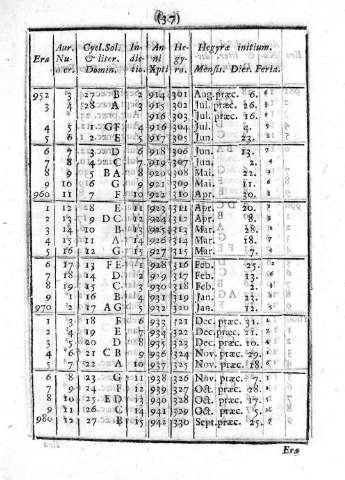 (37)
Era Aur. Nu- mer. Cycl. Sol. & liter. Domin. In- dic- tio. An ni Xpti He- gy- ra. Hegyræ initium. Mensis. Dier. Feria.
952 3 27 B 2 914 301 Aug. præc. 6.
3 4 28 A 3 915 302 Jul. præc. 26.
916 303 Jul. præc. 16.
4 5 1 GF 4 916 304 Jul. 4.
5 6 2 E 5 917 305 Jun. 23.
6 7 3 D 6 918 306 Jun. 13.
7 8 4 C 7 919 307 Jun. 2.
8 9 5 BA 8 920 308 Mai. 22.
9 10 6 G 9 921 309 Mai. 11.
960 11 7 F 10 922 310 Apr. 30.
1 12 8 E 11 923 311 Apr. 20.
2 13 9 DC 12 924 312 Apr. 8.
3 14 10 B 13 925 313 Mar. 28.
4 15 11 A 14 926 314 Mar. 18.
5 16 12 G 15 927 315 Mar. 7.
6 17 13 FE 1 928 316 Feb. 25.
7 18 14 D 2 929 317 Feb.
8 19 15 C 3 930 318 Feb.
9 1 16 B 4 931 319 Jan. 23.
970 2 17 AG 5 932 320 Jan. 12.
1 3 18 F 6 933 321 Dec. præc. 31.
2 4 19 E 7 934 322 Dec. præc. 21.
3 5 20 D 8 935 323 Dec. præc.
4 6 21 CB 9 936 324 Nov. præc. 29.
5 7 22 A 10 937 325 Nov. præc. 18.
6 8 23 G 11 938 326 Nov. præc. 7.
7 9 24 F 12 939 327 Oct. præc. 28.
8 10 25 ED 13 940 328 Oct. præc. 17.
9 11 26 C 14 941 329 Oct. præc. 5.
980 12 27 B 15 942 330 Sept. præc. 25.
Era